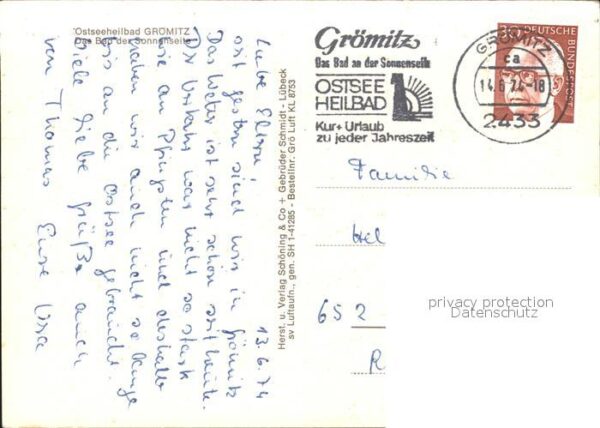 Ostseeheilbad GRÖMITZ
Das Bad der Sonnenseite
13.6.74
Liebe Eltern!
seit gestern sind wir in Grömitz
Das Wetter ist sehr schön seit heute.
Der Verkehr war nicht so stark
wie an Pfingsten und deshalb
haben wir auch nicht so lange
bis an die Ostsee gebraucht.
Viele liebe Grüße auch
von Thomas Eure
Herst. u. Verlag Schöning & Co + Gebrüder Schmidt - Lübeck
sv Luftaufn., gen. SH 1-41285 - Bestellnr. Grö Luft KL 8753
Grömitz
Das Bad an der Sonnenseite
OSTSEE
HEILBAD
Kur + Urlaub
zu jeder Jahreszeit
GRÖMITZ
ca
14.6.74-18
2433
DEUTSCHE BUNDESPOST
Familie
Hel
652
R
privacy protection
Datenschutz